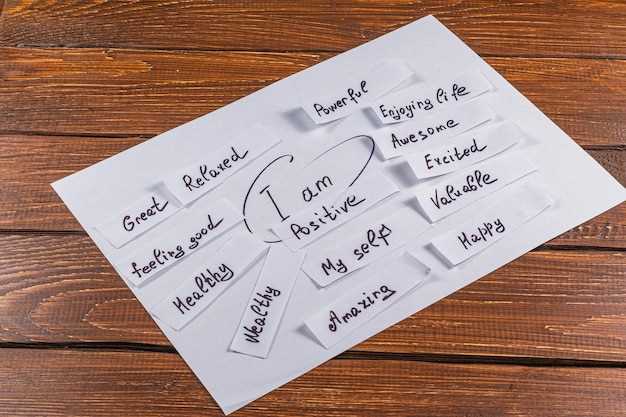 Powerful
Enjoying life
Awesome
Excited
Valuable
Happy
Relaxed
Great
feeling good
Healthy
Wealthy
I am
Positive
My self
Amazing